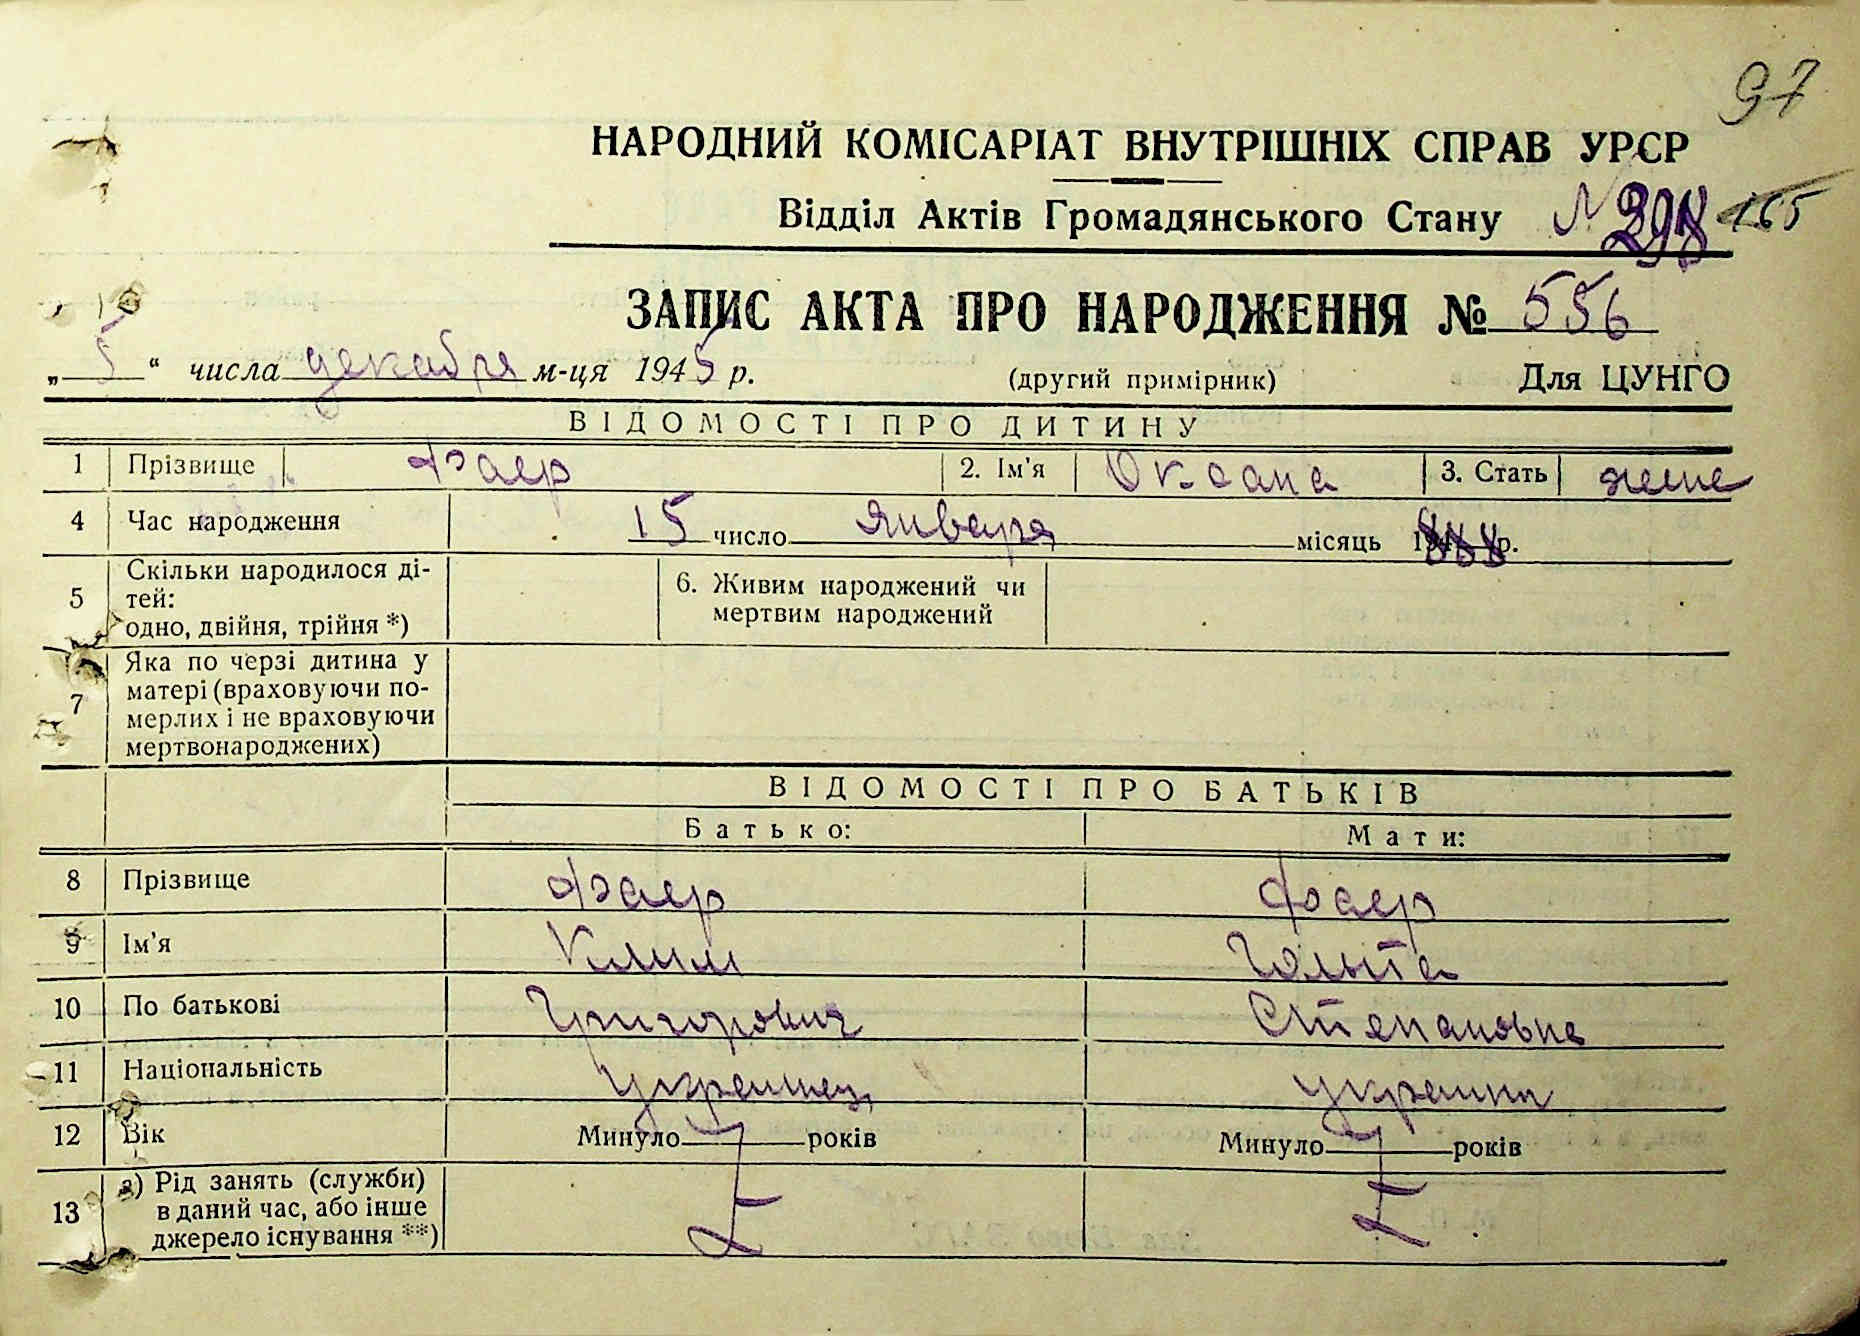 97
НАРОДНИЙ КОМІСАРІАТ ВНУТРІШНІХ СПРАВ УРСР
Відділ Актів Громадянського Стану № 165
ЗАПИС АКТА ПРО НАРОДЖЕННЯ № 556
„ 5 “ числа декабря м-ця 1945 р. (другий примірник) Для ЦУНГО
ВІДОМОСТІ ПРО ДИТИНУ
1 Прізвище Фаер 2. Ім'я Оксана 3. Стать жене
4 Час народження 15 число января місяць р.
5 Скільки народилося ді-
тей:
одно, двійня, трійня *) 6. Живим народжений чи
мертвим народжений
7 Яка по черзі дитина у
матері (враховуючи по-
мерлих і не враховуючи
мертвонароджених)
ВІДОМОСТІ ПРО БАТЬКІВ
Батько: Мати:
8 Прізвище Фаер Фаер
9 Ім'я Клим
10 По батькові Григорович Степановна
11 Національність украинец украинка
12 Вік Минуло років Минуло років
13 а) Рід занять (служби)
в даний час, або інше
джерело існування **)